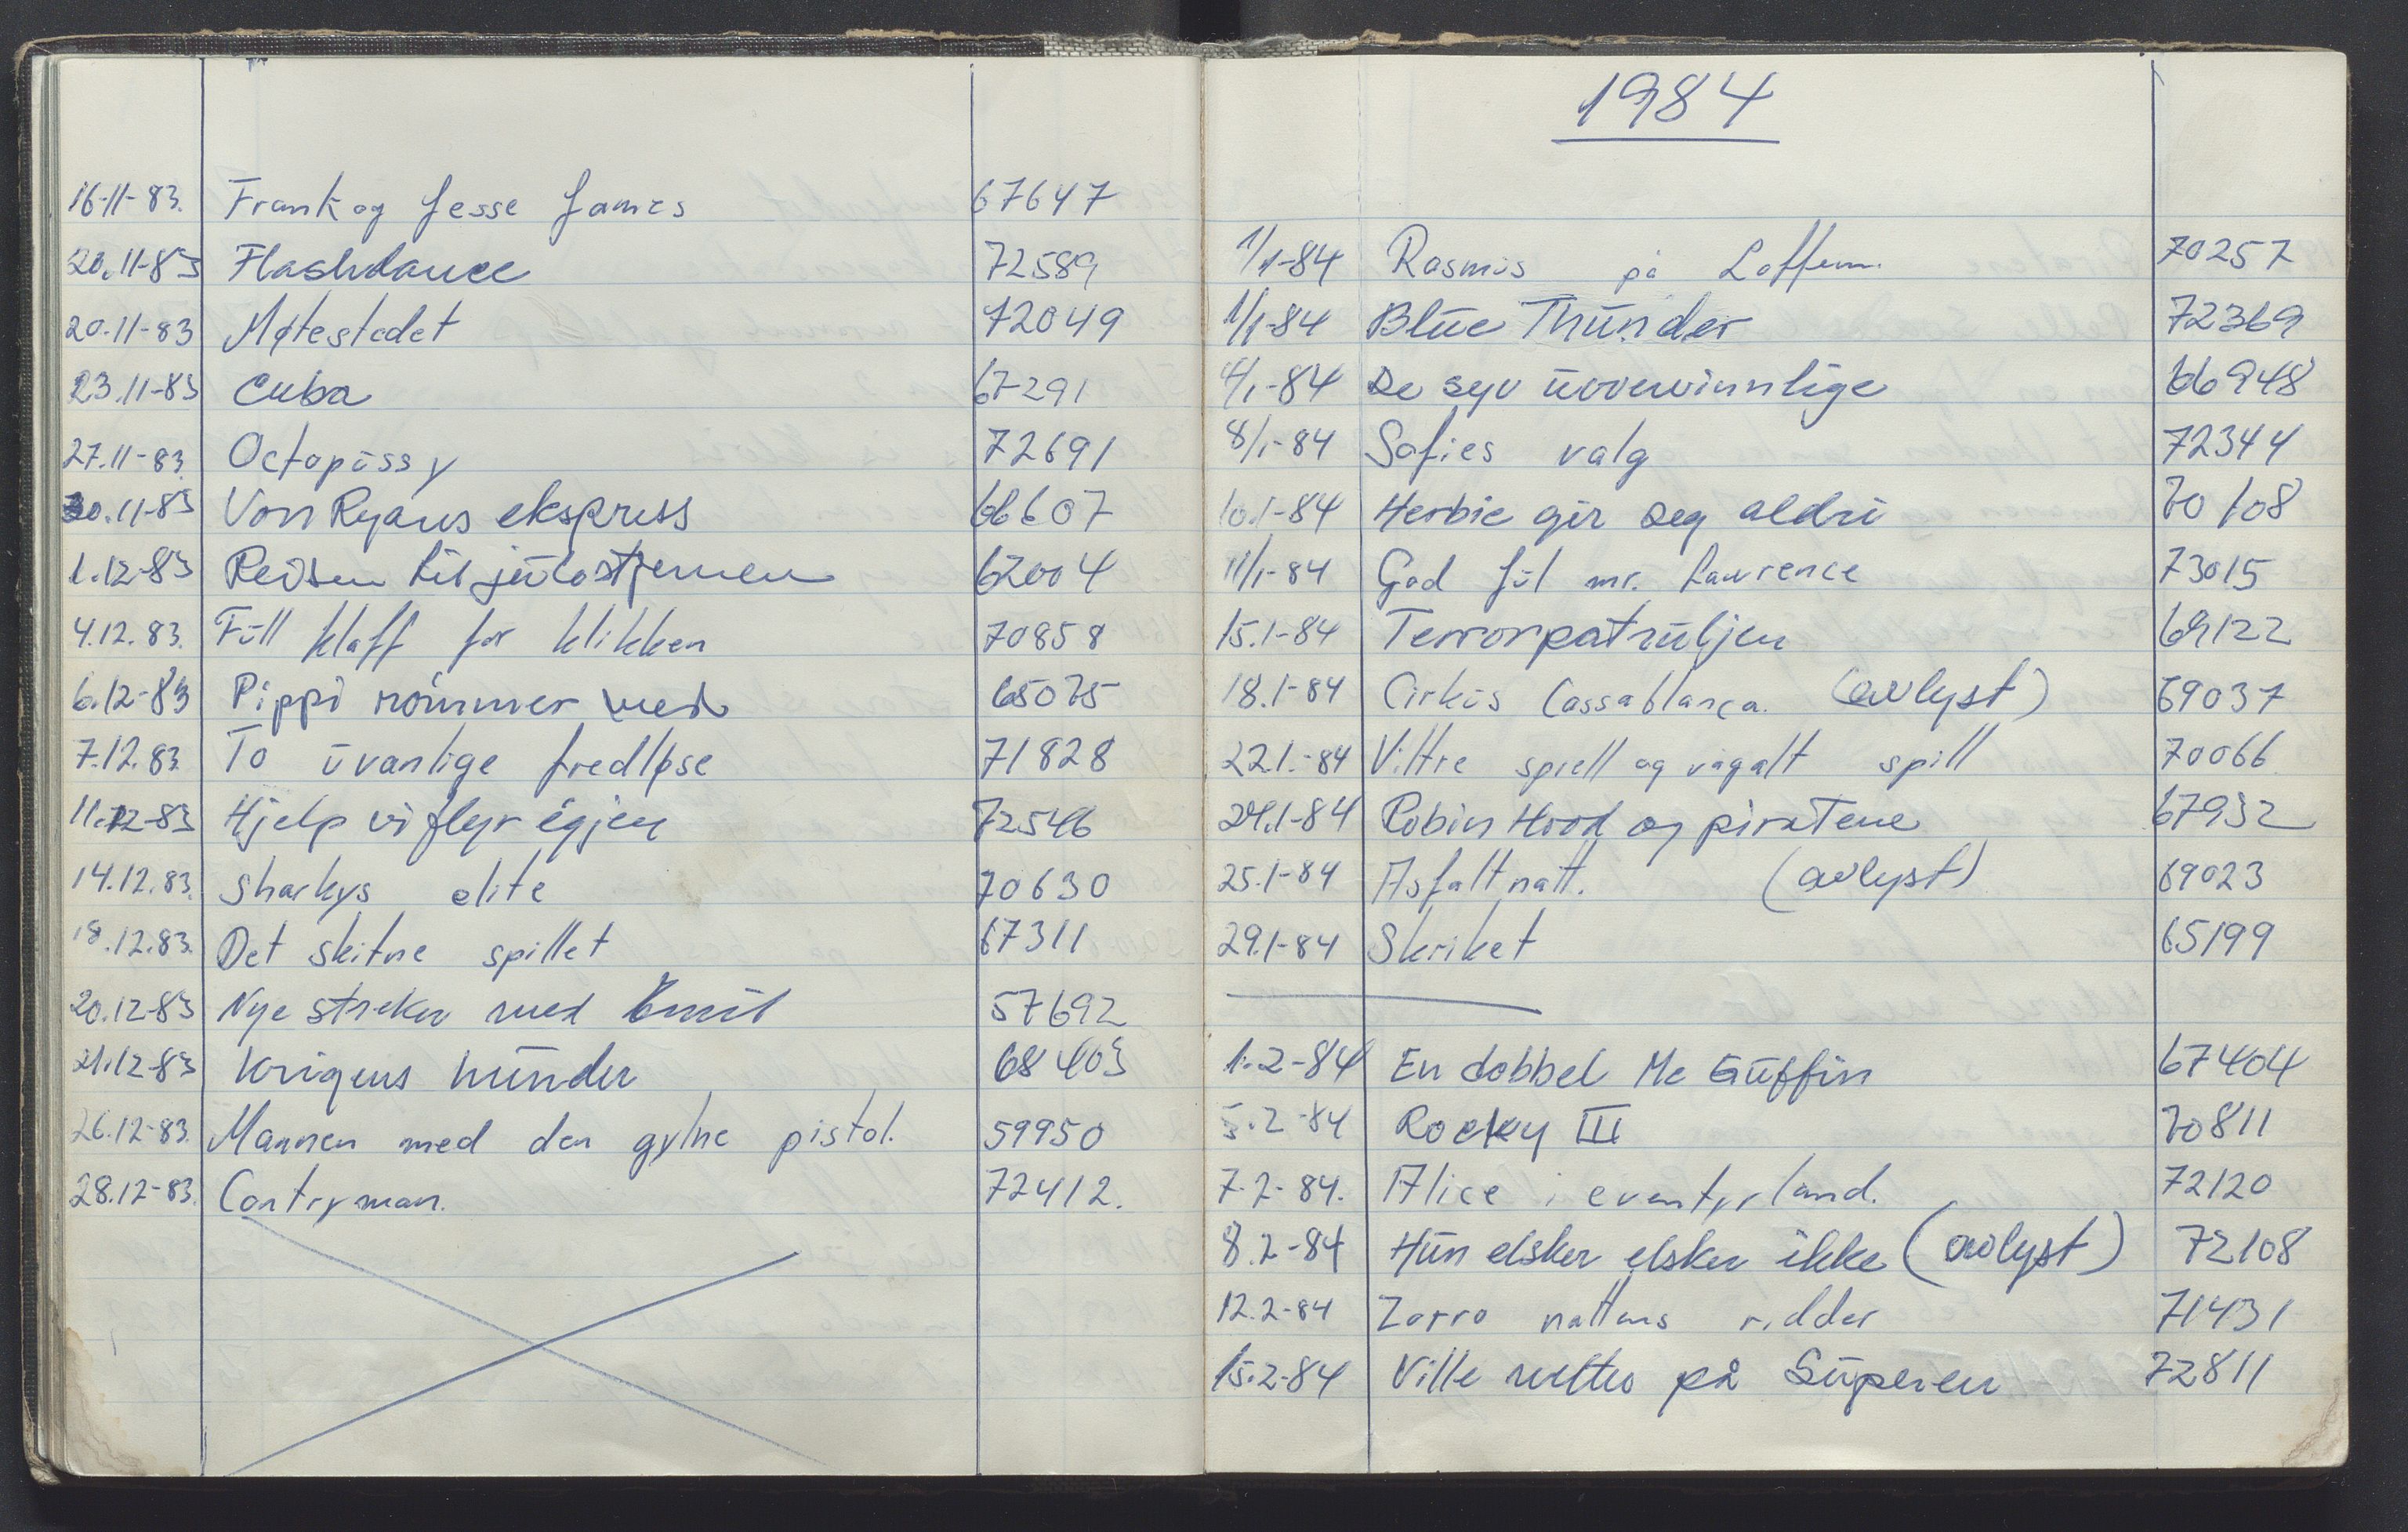 16-11-83. Frank og Jesse James 67647
20.11-83 Flashdance 72589
20.11-83 Møtestedet 72049
23.11-83 Cuba 67291
27.11-83. Octopussy 72691
30.11-83 Von Ryans ekspress 66607
1.12-83 Reisen til julestjernen 62004
4.12.83. Full klaff for klikken 70858
6.12-83 Pippi römmer med 65075
7.12.83. To uvanlige fredløse 71828
11.12-83 Hjelp vi flyr igjen 72546
14.12.83. Sharkys elite 70630
18.12.83. Det skitne spillet 67311
20.12-83 Nye streker med Emil 57692
21.12-83 Krigens hunder 68403
26.12-83. Mannen med den gylne pistol. 59950
28.12-83. Contryman. 72412.
1984
1/1-84 Rasmus på Loffen. 70257
1/1-84 Blue Thunder 72369
4/1-84 De syv uovervinnlige 66948
8/1-84 Sofies valg 72344
10.1-84 Herbie gir seg aldri 70108
11/1-84 God Jul mr. Lawrence 73015
15.1-84 Terrorpatruljen 69122
18.1-84 Cirkus Cassablanca. (avlyst) 69037
22.1.-84 Viltre sprell og vågalt spill 70066
24.1-84 Robin Hood og piratene 67932
25.1-84 Asfaltnatt. (avlyst) 69023
29.1-84 Skriket 65199
1.2-84 En dobbel Mc Guffin 67404
5.2-84 Rocky III 70811
7.2-84. Alice i eventyrland. 72120
8.2-84 Hun elsker elsker ikke (avlyst) 72108
12.2-84 Zorro nattens ridder 71431
15.2-84 Ville på Superen 72811